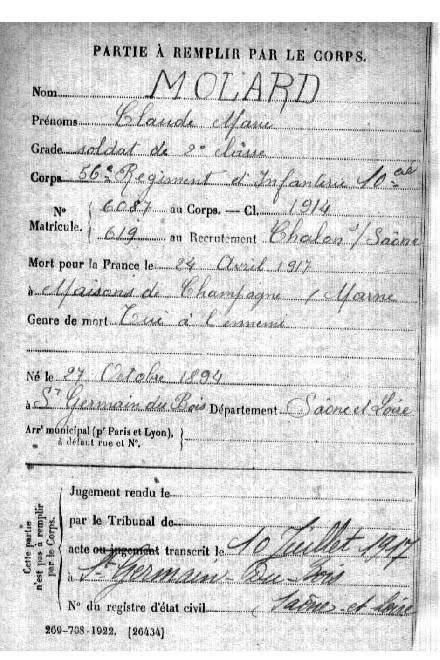 PARTIE À REMPLIR PAR LE CORPS.
Nom MOLARD
Prénoms Claude Marie
Grade soldat de 2e classe
Corps 56e Regiment d'Infanterie 10e Cie
No Matricule. 6087 au Corps. — Cl. 1914
619 au Recrutement Chalon s/ Saône
Mort pour la France le 24 Avril 1917
à Maisons de Champagne / Marne
Genre de mort Tué à l'ennemi
Né le 27 Octobre 1894
à St Germain du Bois Département Saône et Loire
Arrt municipal (pr Paris et Lyon), à défaut rue et No.
Cette partie n'est pas à remplir par le Corps.
Jugement rendu le
par le Tribunal de
acte ou jugement transcrit le 10 Juillet 1917
à St Germain-Du-Bois
No du registre d'état civil Saône-et-Loire
269-708-1922. [26434]